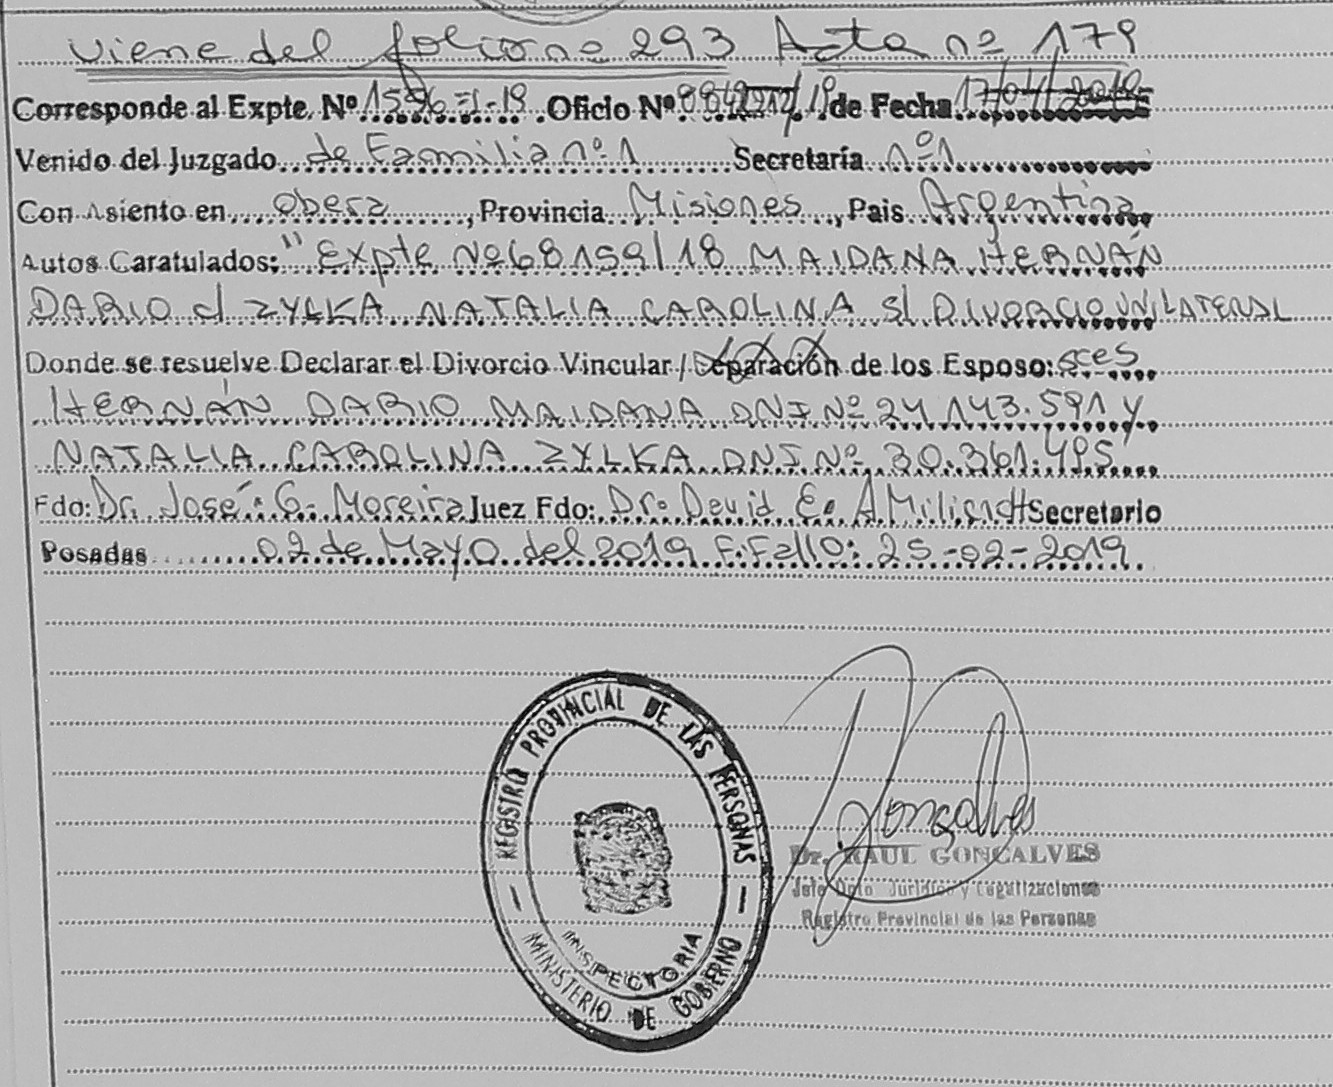 viene del folio no 293 Acta nº 179
Corresponde al Expte. Nº 1596-I-19 Oficio Nº /19 de Fecha 17/04/2019
Venido del Juzgado de Familia nº 1 Secretaría nº 1
Con Asiento en Obera, Provincia Misiones, Pais Argentina
Autos Caratulados: "Expte Nº 68159/18 MAIDANA HERNÁN
DARIO c/ ZYLKA NATALIA CAROLINA s/ DIVORCIO UNILATERAL
Donde se resuelve Declarar el Divorcio Vincular / Separación de los Esposo: sces
HERNÁN DARIO MAIDANA DNI Nº 24.143.591 y
NATALIA CAROLINA ZYLKA DNI Nº 30.361.495
Fdo: Dr. José G. Moreira Juez Fdo: Dr. David E. Secretario
Posadas 02 de Mayo del 2019 F. Fallo: 25-02-2019
REGISTRO PROVINCIAL DE LAS PERSONAS
INSPECTORIA
MINISTERIO DE GOBIERNO
Gonçalves
Dr. RAUL GONCALVES
Jefe Dpto Jurídico y Legalizaciones
Registro Provincial de las Personas